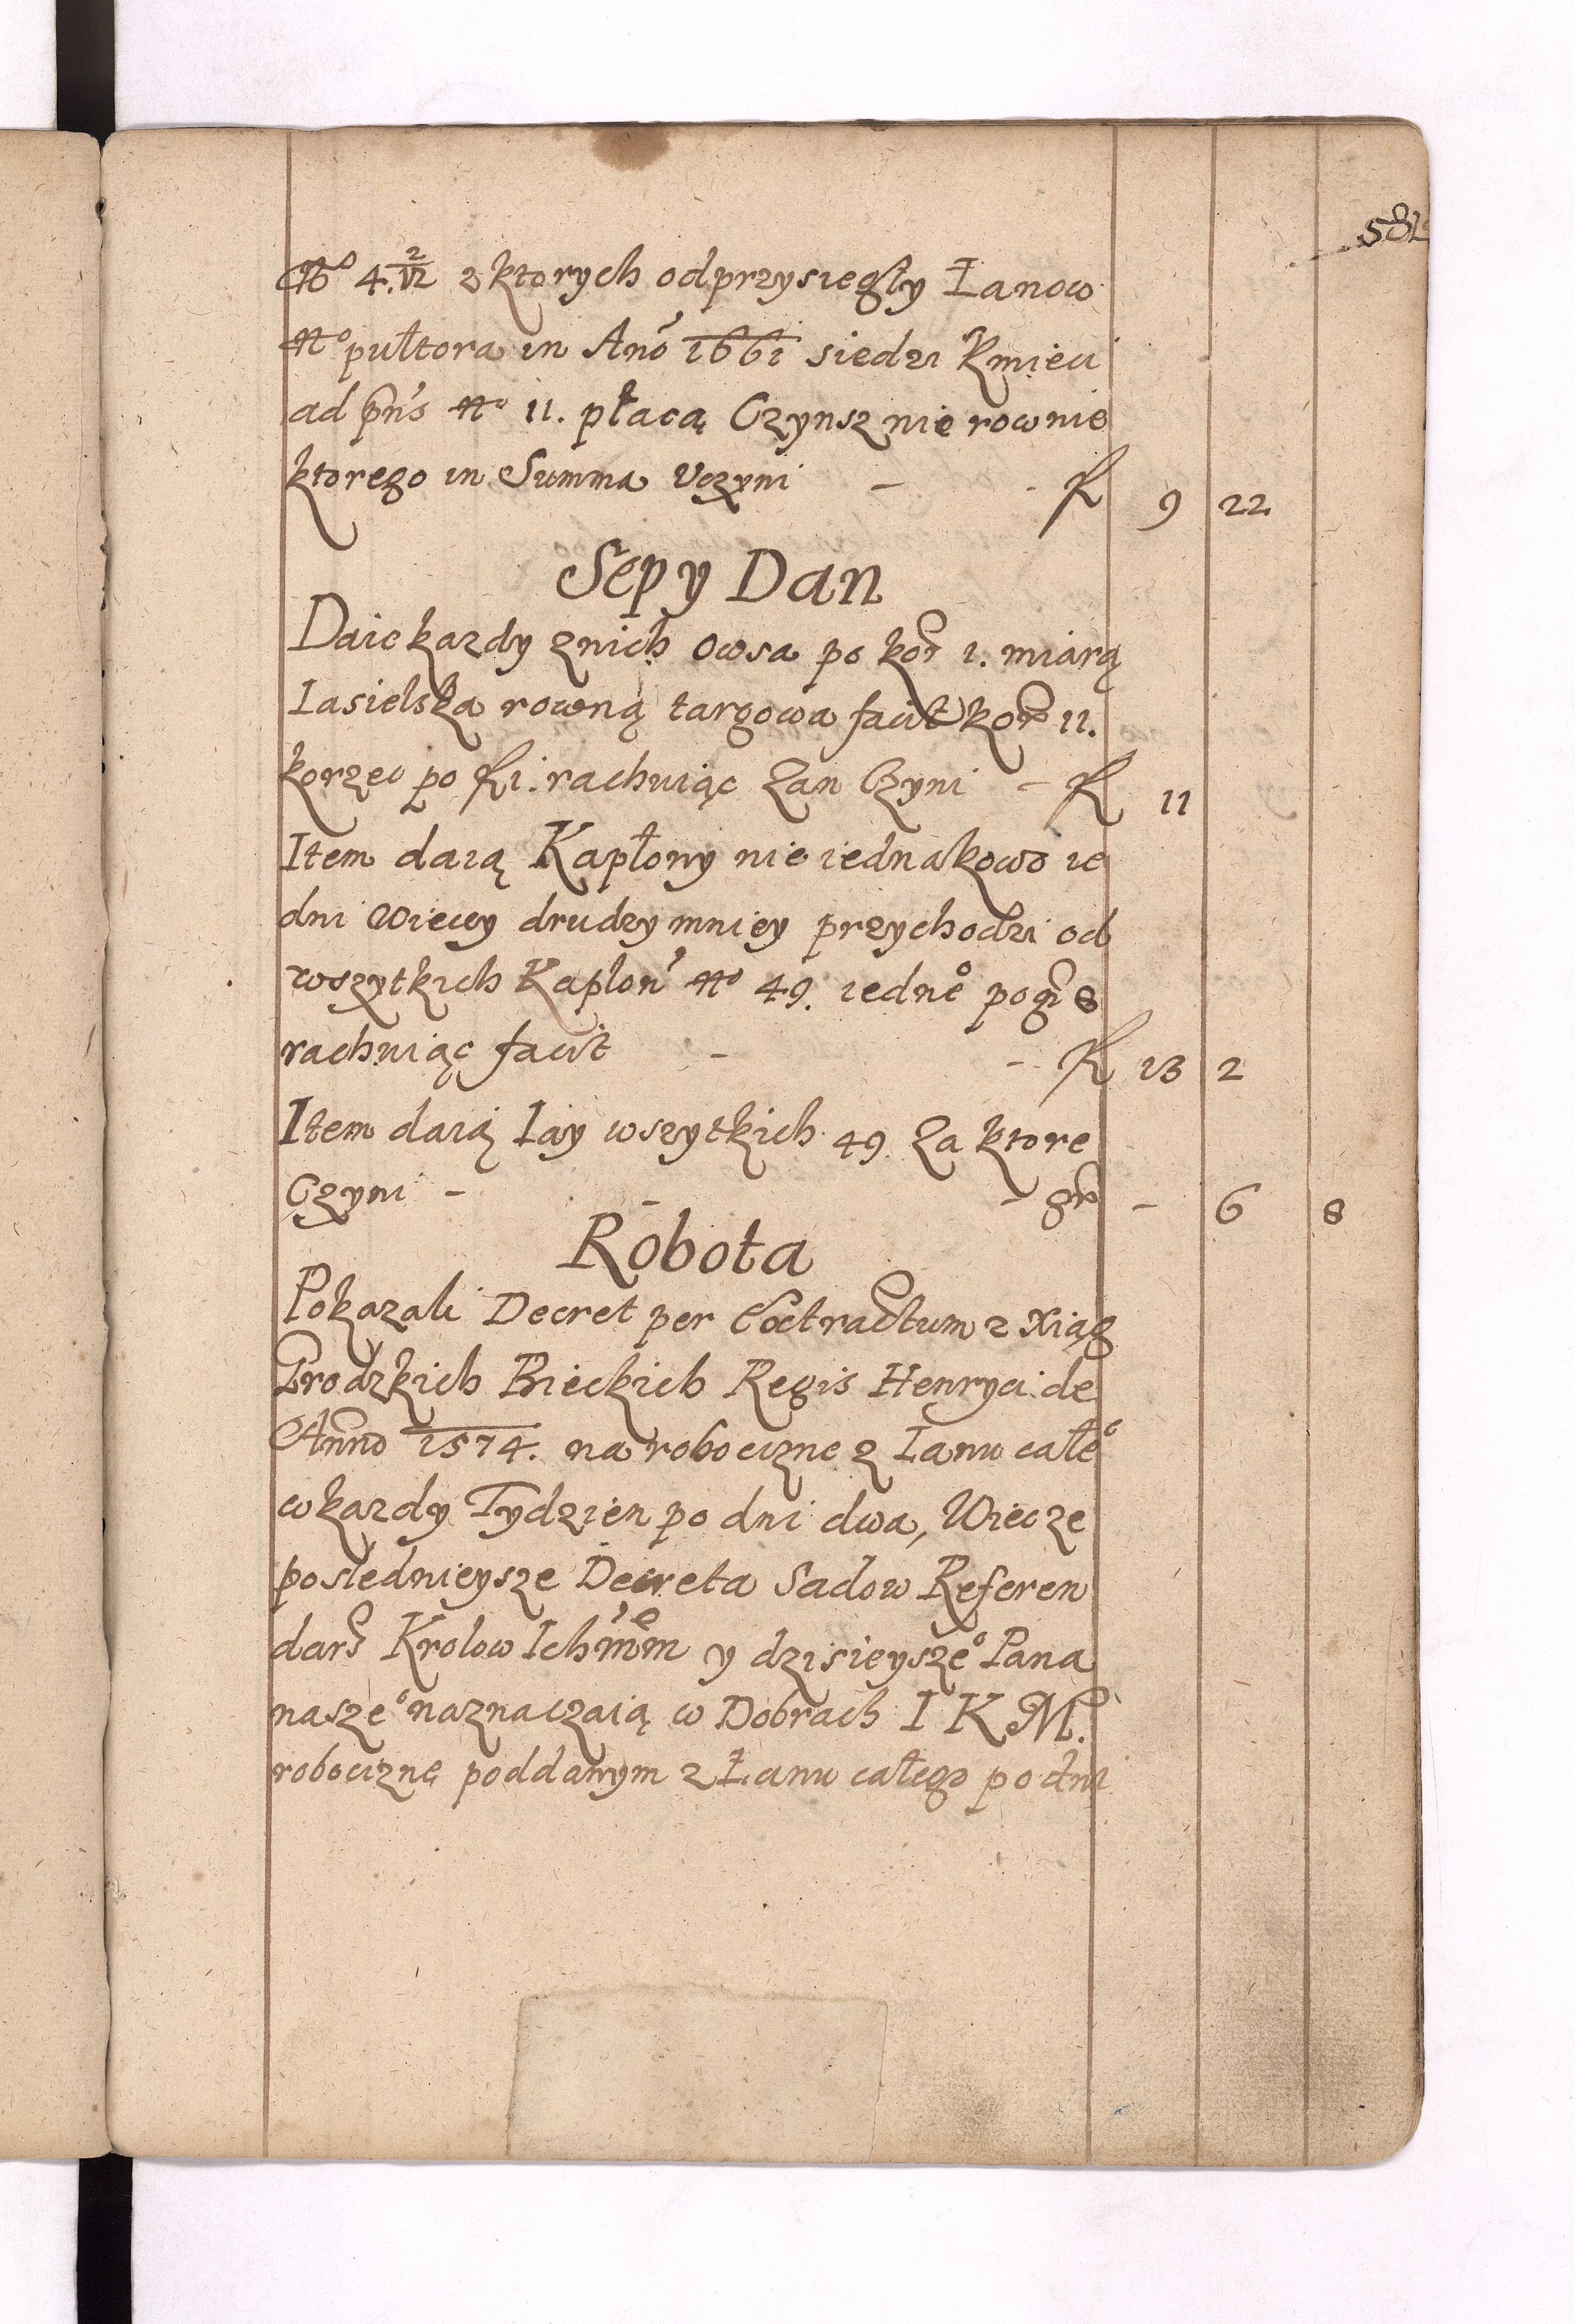 No 4. 2/12 z ktorych odprzysiegły Łanow
No pułtora in Anō 1661 siedzi Kmieci
ad pñs No 11. płacą Czynsz nie rownie
ktorego in Summa Vczyni - - fl 9 22
Sepy Dan
Daie kazdy znich Owsa po kor 1. miarą
Iasielska rowną targowa facit kor 11.
korzec po fl 1. rachuiąc Zan Czyni - fl 11
Item daią Kapłony nie iednakowo ie
dni Wiecey drudzy mniey przychodzi od
wszytkich Kaplon No 49. iedne° po gr 8
rachuiąc facit - - fl 13 2
Item daią Iay wszytkich 49 Za ktore
Czyni - - - gr - 6 8
Robota
Pokazali Decret per Extractum z Xiąg
Grodzkich Bieckich Regis Henryci de
Anno 1574. na robocizne z Łanu całe°
w kazdy Tydzien po dni dwa, Wiec ze
poslednieysze Decreta Sadow Referen
dars Krolow Ichmm y dzisieysze° Pana
nasze° naznaczaią w Dobrach I K M.
robocizne poddanym z Łanu całego po dni